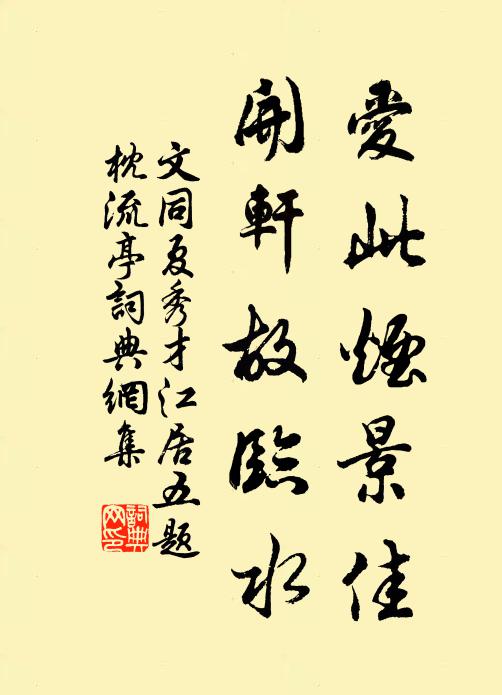 愛此煙景佳
開軒故臨水
文同夏秀才江居五题
枕流亭詞典網集
詞典
网印